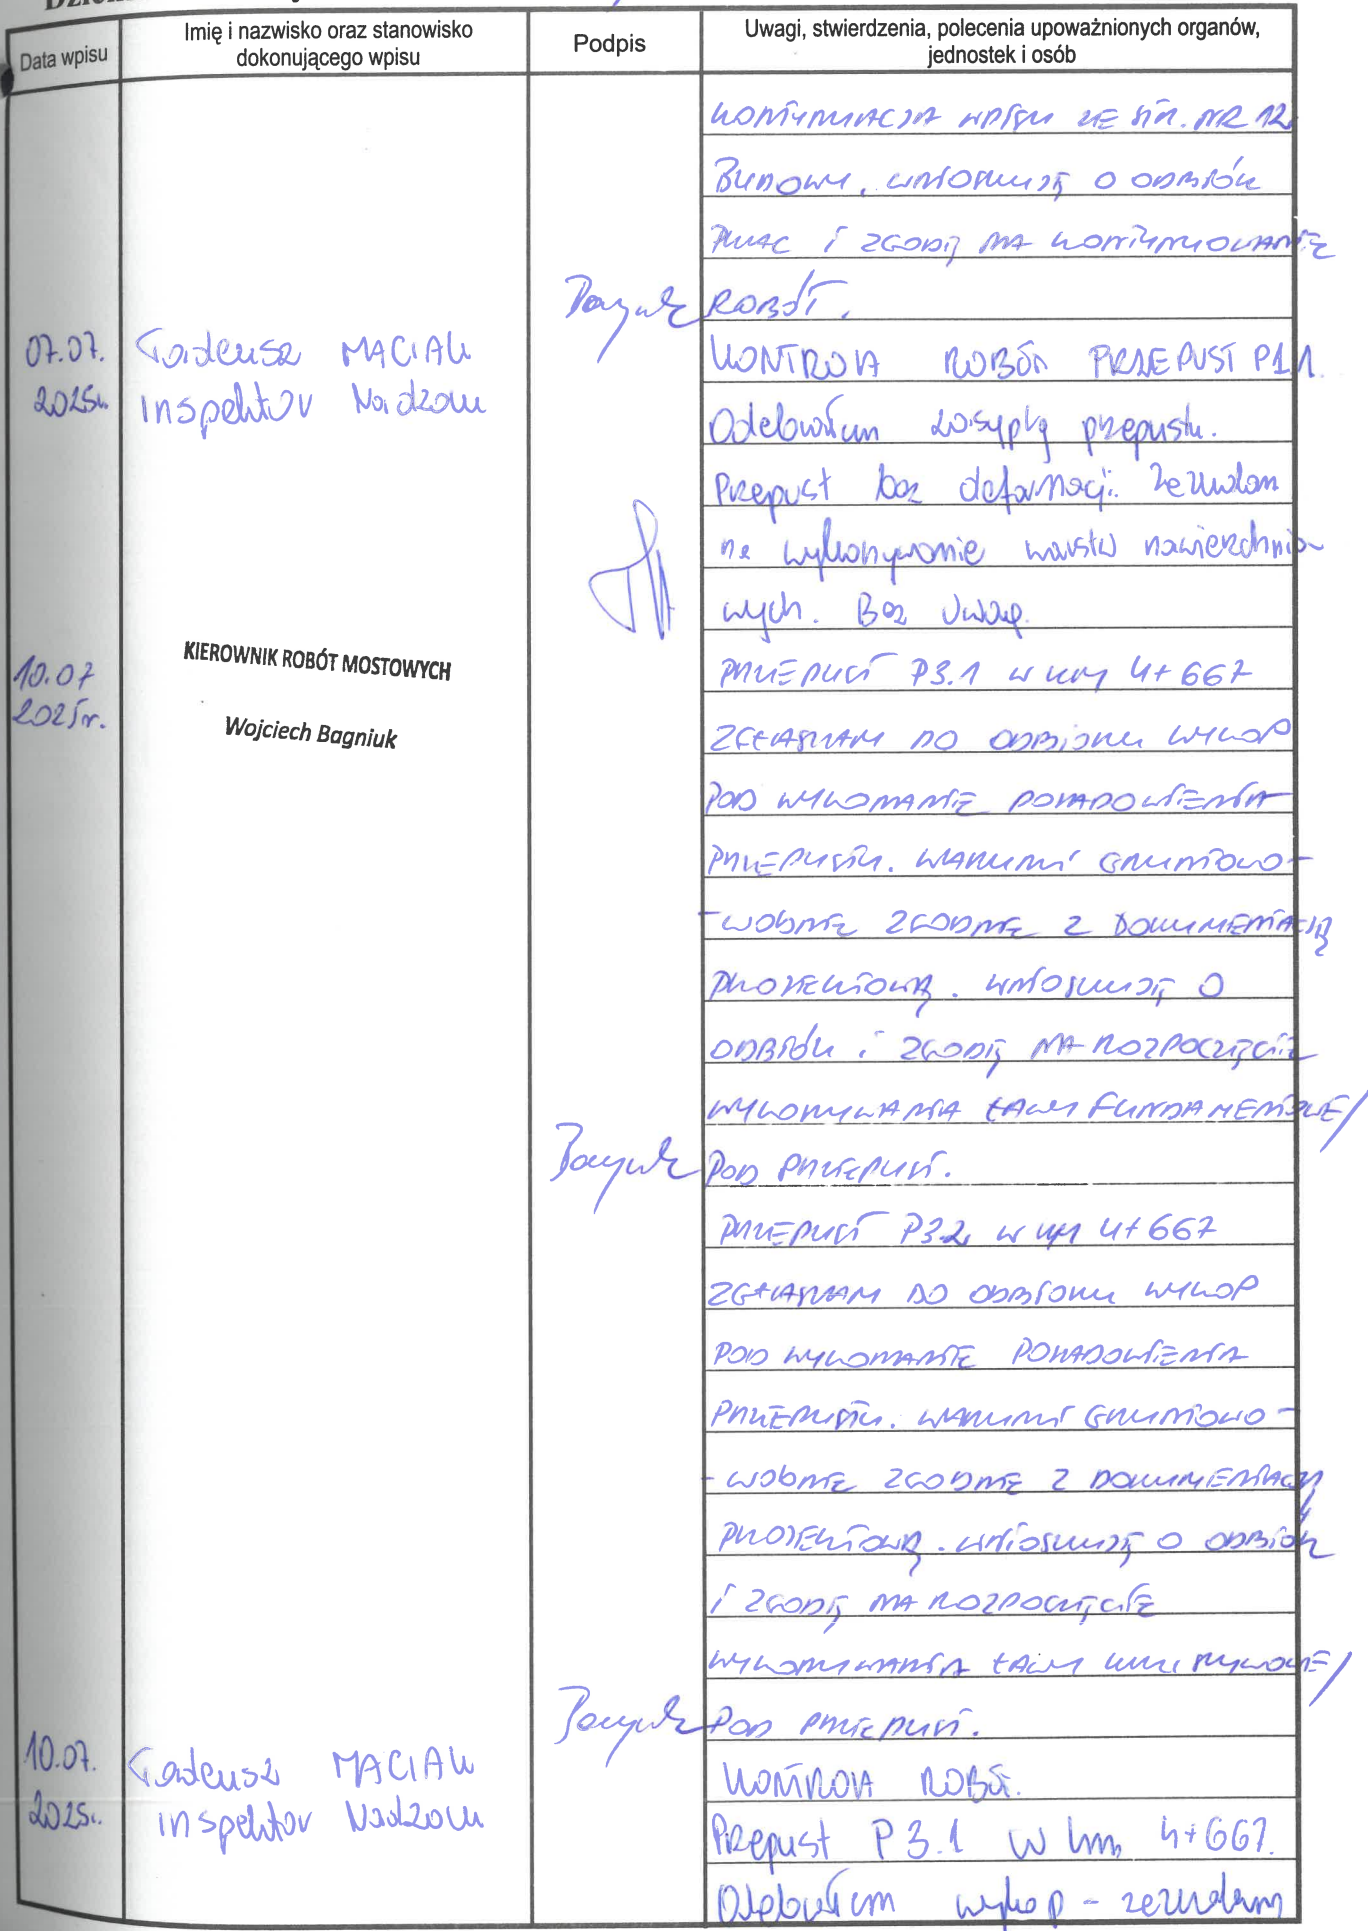 Data wpisu
Imię i nazwisko oraz stanowisko
dokonującego wpisu
Podpis
Uwagi, stwierdzenia, polecenia upoważnionych organów,
jednostek i osób
KONTYNUACJA WPISU ZE STR. NR 12
BUDOWY. WNIOSKUJĘ O ODBIÓR
PRAC I ZGODĘ NA KONTYNUOWANIE
ROBÓT.
07.07.
2025r.
Tadeusz MACIAK
inspektor Nadzoru
KONTROLA ROBÓT PRZEPUST P1.1.
Odebrałem zasypkę przepustu.
Przepust bez deformacji. Zezwalam
na wykonywanie warstw nawierzchnio-
wych. Bez uwag.
10.07
2025r.
KIEROWNIK ROBÓT MOSTOWYCH
Wojciech Bagniuk
PRZEPUST P3.1 W KM 4+667
ZGŁASZAM DO ODBIORU WYKOP
POD WYKONANIE POSADOWIENIA
PRZEPUSTU. WARUNKI GRUNTOWO-
-WODNE ZGODNE Z DOKUMENTACJĄ
PROJEKTOWĄ. WNIOSKUJĘ O
ODBIÓR I ZGODĘ NA ROZPOCZĘCIE
WYKONYWANIA ŁAWY FUNDAMENTOWEJ
POD PRZEPUST.
PRZEPUST P3.2 W KM 4+667
ZGŁASZAM DO ODBIORU WYKOP
POD WYKONANIE POSADOWIENIA
PRZEPUSTU. WARUNKI GRUNTOWO-
-WODNE ZGODNE Z DOKUMENTACJĄ
PROJEKTOWĄ. WNIOSKUJĘ O ODBIÓR
I ZGODĘ NA ROZPOCZĘCIE
WYKONYWANIA ŁAWY KRUSZYWOWEJ
POD PRZEPUST.
10.07.
2025r.
Tadeusz MACIAK
inspektor Nadzoru
KONTROLA ROBÓT.
Przepust P3.1 w km 4+667.
Odebrałem wykop - zezwalam